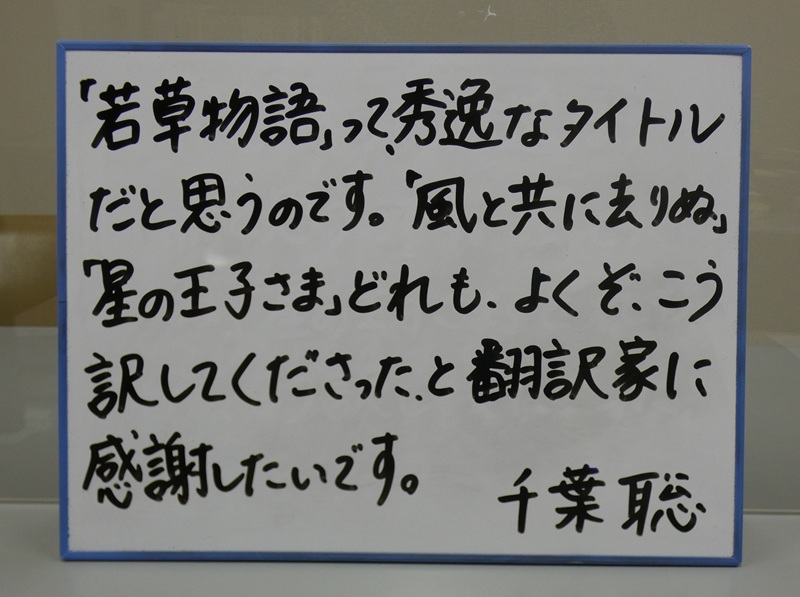 「若草物語」って、秀逸なタイトル
だと思うのです。「風と共に去りぬ」
「星の王子さま」どれも、よくぞ、こう
訳してくださった、と翻訳家に
感謝したいです。
千葉聡